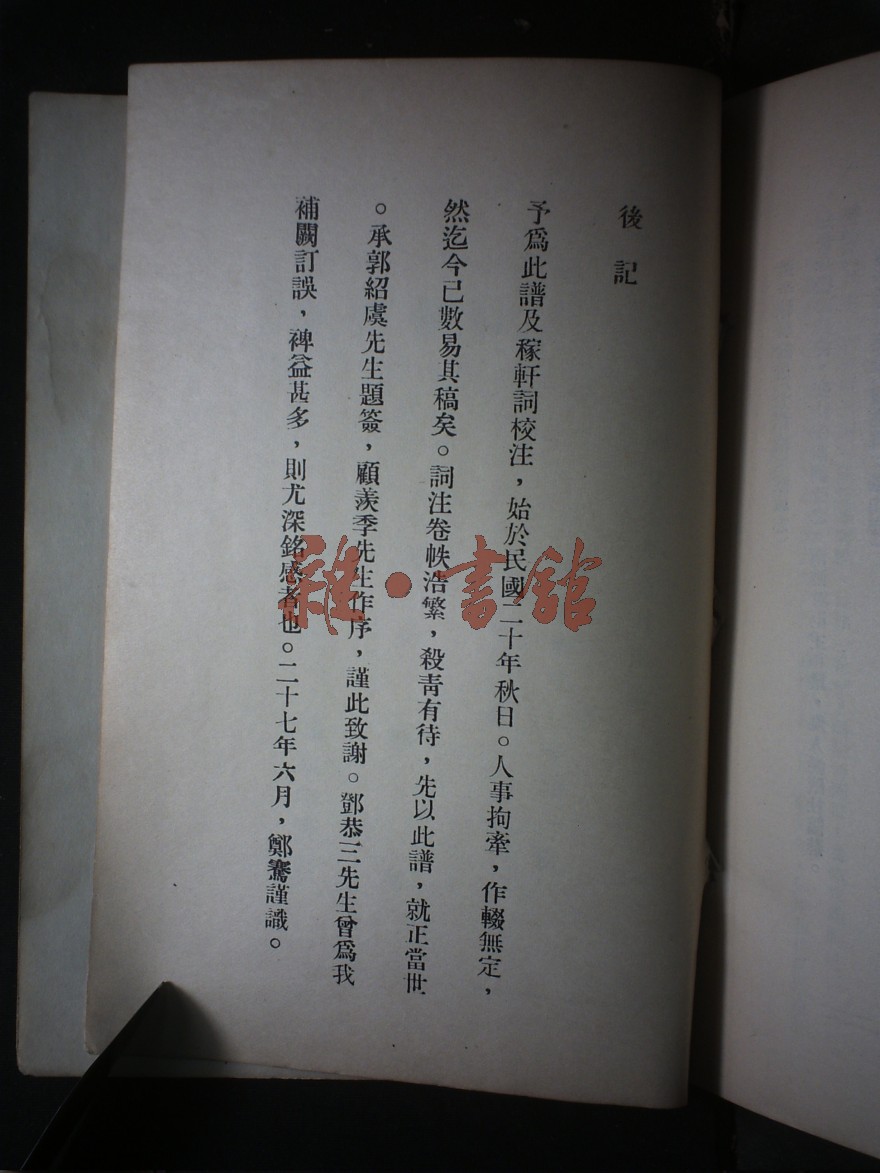 後記
予爲此譜及稼軒詞校注，始於民國二十年秋日。人事拘牽，作輟無定，
然迄今已數易其稿矣。詞注卷帙浩繁，殺青有待，先以此譜，就正當世
。承郭紹虞先生題簽，顧羨季先生作序，謹此致謝。鄧恭三先生曾爲我
補闕訂誤，裨益甚多，則尤深銘感者也。二十七年六月，鄭騫謹識。
雜·書館